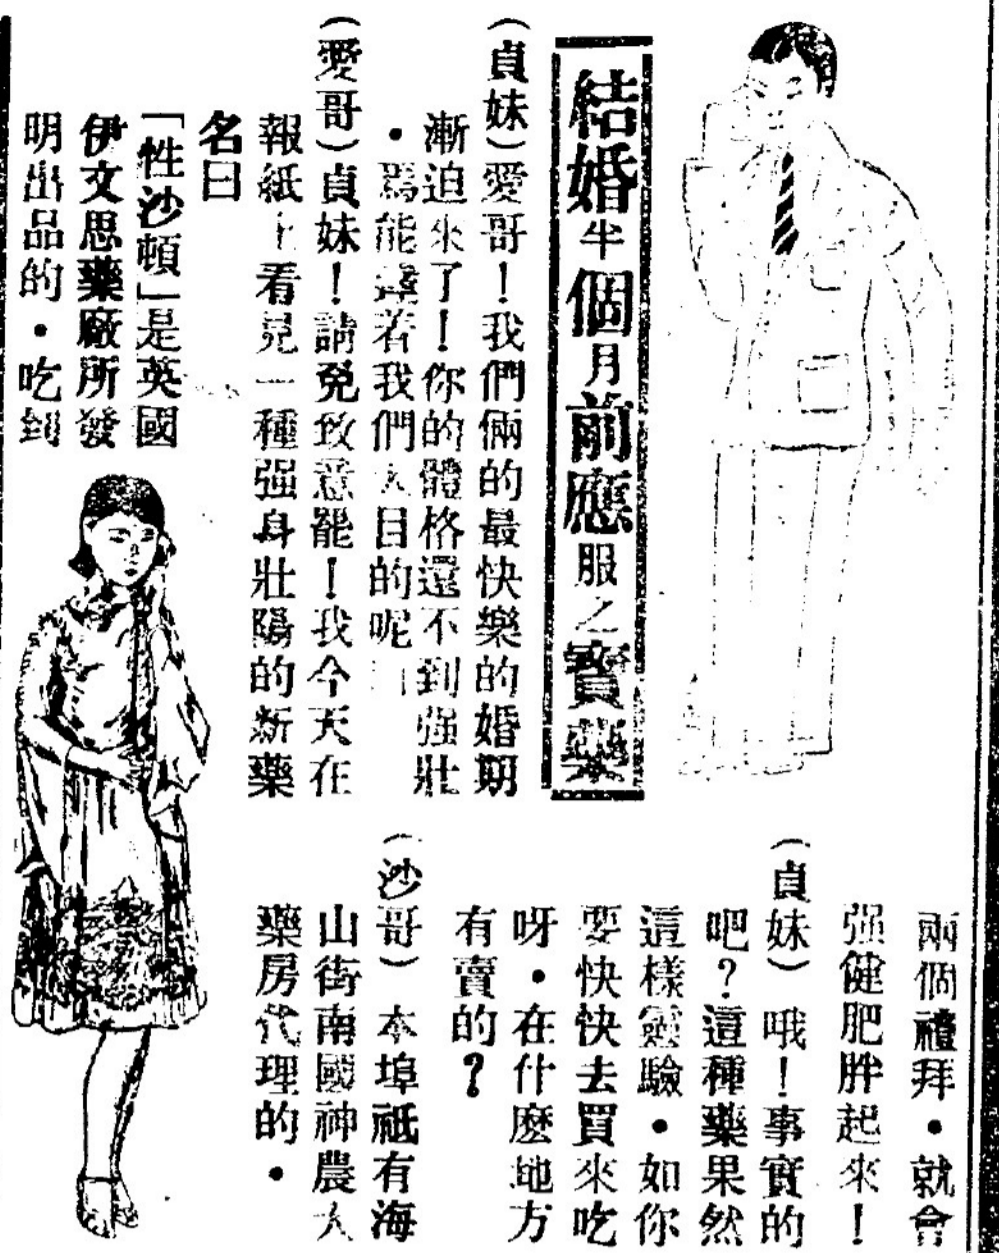 結婚半個月前應服之寶藥
(貞妹)愛哥!我們倆的最快樂的婚期
漸迫來了!你的體格還不到强壯
・焉能達着我們大目的呢
(愛哥)貞妹!請免致意罷!我今天在
報紙上看見一種强身壯陽的新藥
名曰
「性沙頓」是英國
伊文思藥廠所發
明出品的・吃到
兩個禮拜・就會
强健肥胖起來!
(貞妹) 哦!事實的
吧?這種藥果然
這樣靈驗・如你
要快快去買來吃
呀・在什麽地方
有賣的?
(沙哥) 本埠祇有海
山街南國神農大
藥房代理的・